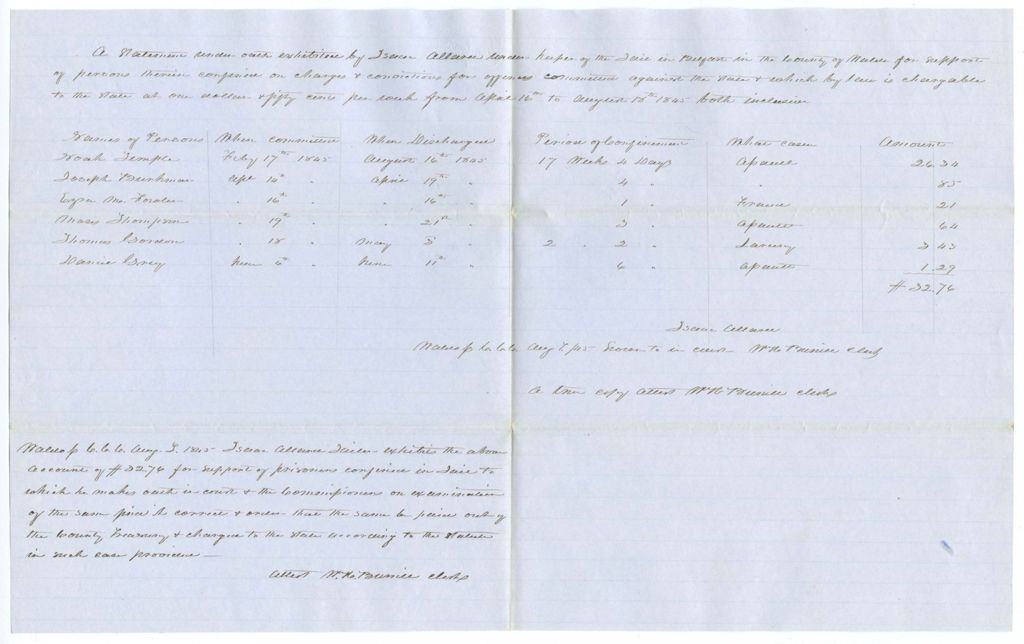 A Statement under oath exhibited by Isaac Allard under keeper of the Jail in Belfast in the County of Waldo for support
of persons therein confined on charges & convictions for offences committed against the State & which by law is chargable
to the State at one dollar & fifty cents per week from April 16th to August 16th 1845 both inclusive
Names of Persons When committed When Discharged Period of Confinement What cause Amount
Noah Temple Feby 17th 1845 August 16th 1845 17 Weeks 4 Days Assault 26.34
Joseph Apl 14th " April 19th " 4 " " 85
Ezra M. " 16th " " 16th " 1 " 21
Thompson " 19th " " 21st " 3 " Assault 64
Thomas Gordon " 18 " May 3 " 2 " 2 " Larceny 3 43
Daniel June 6th " June 11th " 6 " Assault 1.29
$32.76
Isaac Allard
Waldo ss C.C.C. Aug T. 1845 Sworn to in court Clerk
A true copy attest Clerk
Waldo ss C.C.C. Aug. T. 1845 Isaac Allard Jailer exhibits the above
account of $32.76 for support of prisoners confined in Jail to
which he makes oath in court & the Commissioners on examination
of the same find it correct & order that the same be paid out of
the County Treasury & charged to the State according to the Statute
in such case provided —
Attest Clerk